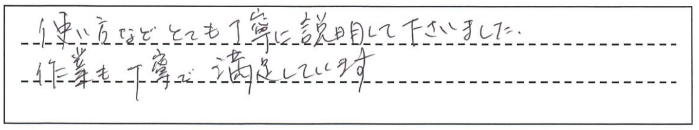 使い方などとても丁寧に説明して下さいました.
作業も丁寧で満足しています